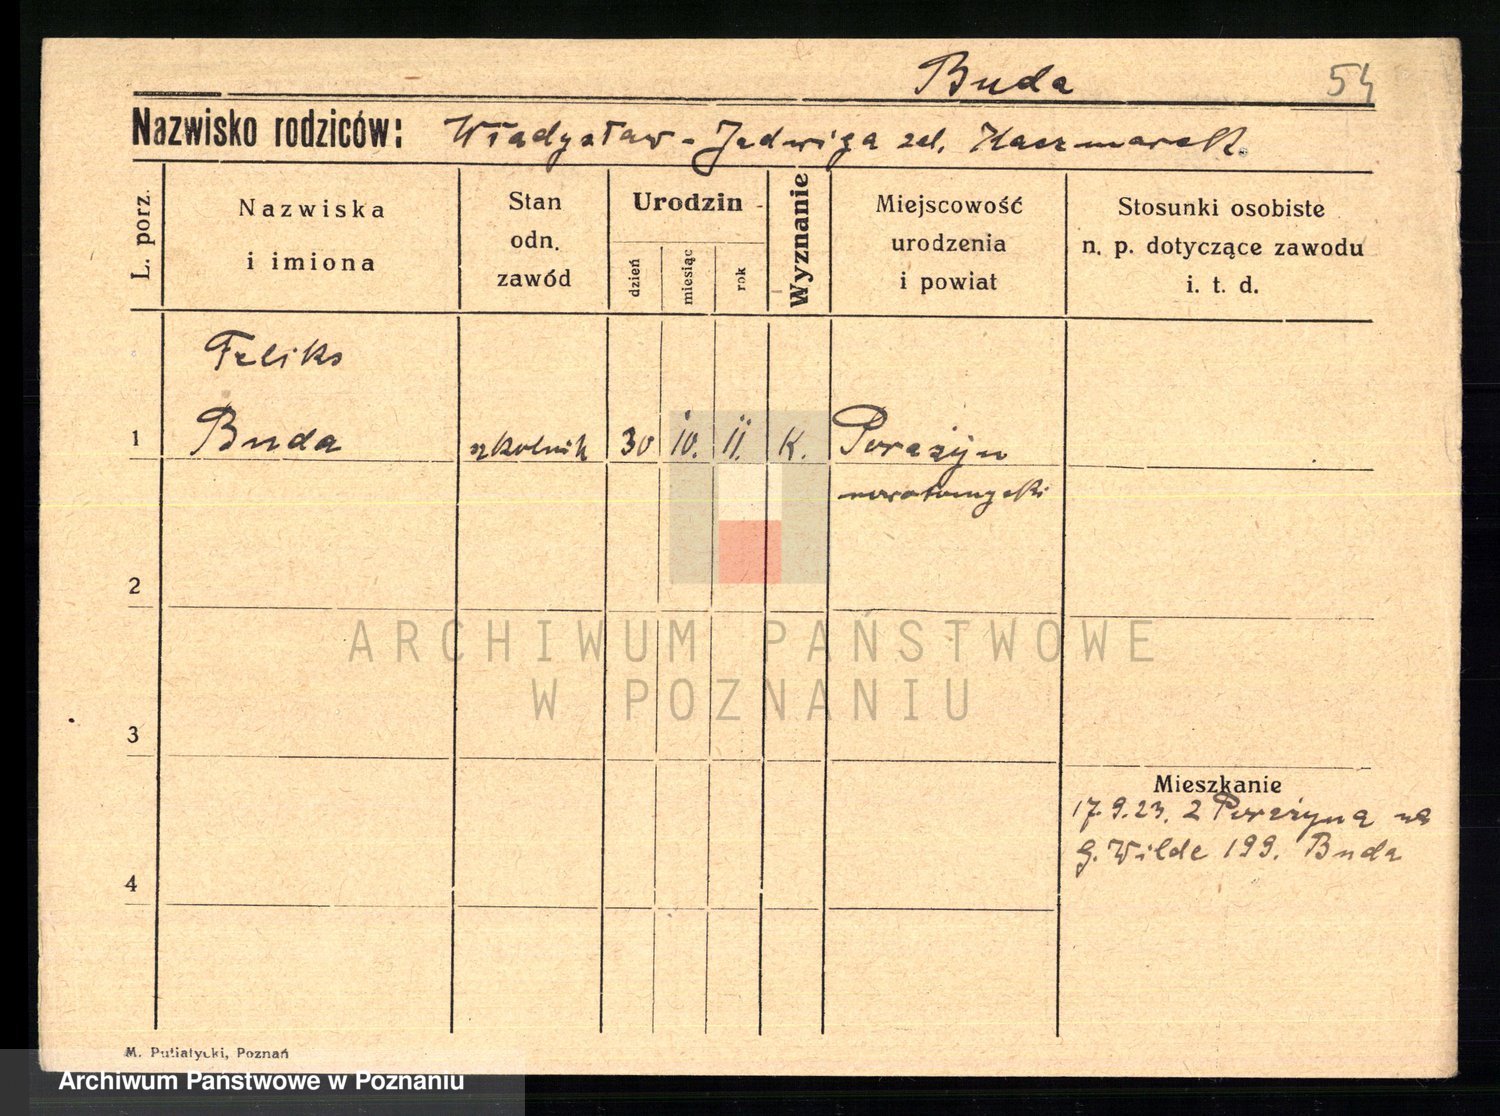 Buda
54
Nazwisko rodziców: Władysław - Jadwiga zd. Kaczmarek.
L. porz.
Nazwiska
i imiona
Stan
odn.
zawód
Urodzin
dzień
miesiąc
rok
Wyznanie
Miejscowość
urodzenia
i powiat
Stosunki osobiste
n. p. dotyczące zawodu
i. t. d.
Feliks
1 Buda szkolnik 30 10. 11. K. Porażyn
nowotomyski
2
ARCHIWUM PAŃSTWOWE
W POZNANIU
3
Mieszkanie
17.9.23. z Porażyna na
G. Wilde 199. Buda
4
M. Putiatycki, Poznań
Archiwum Państwowe w Poznaniu